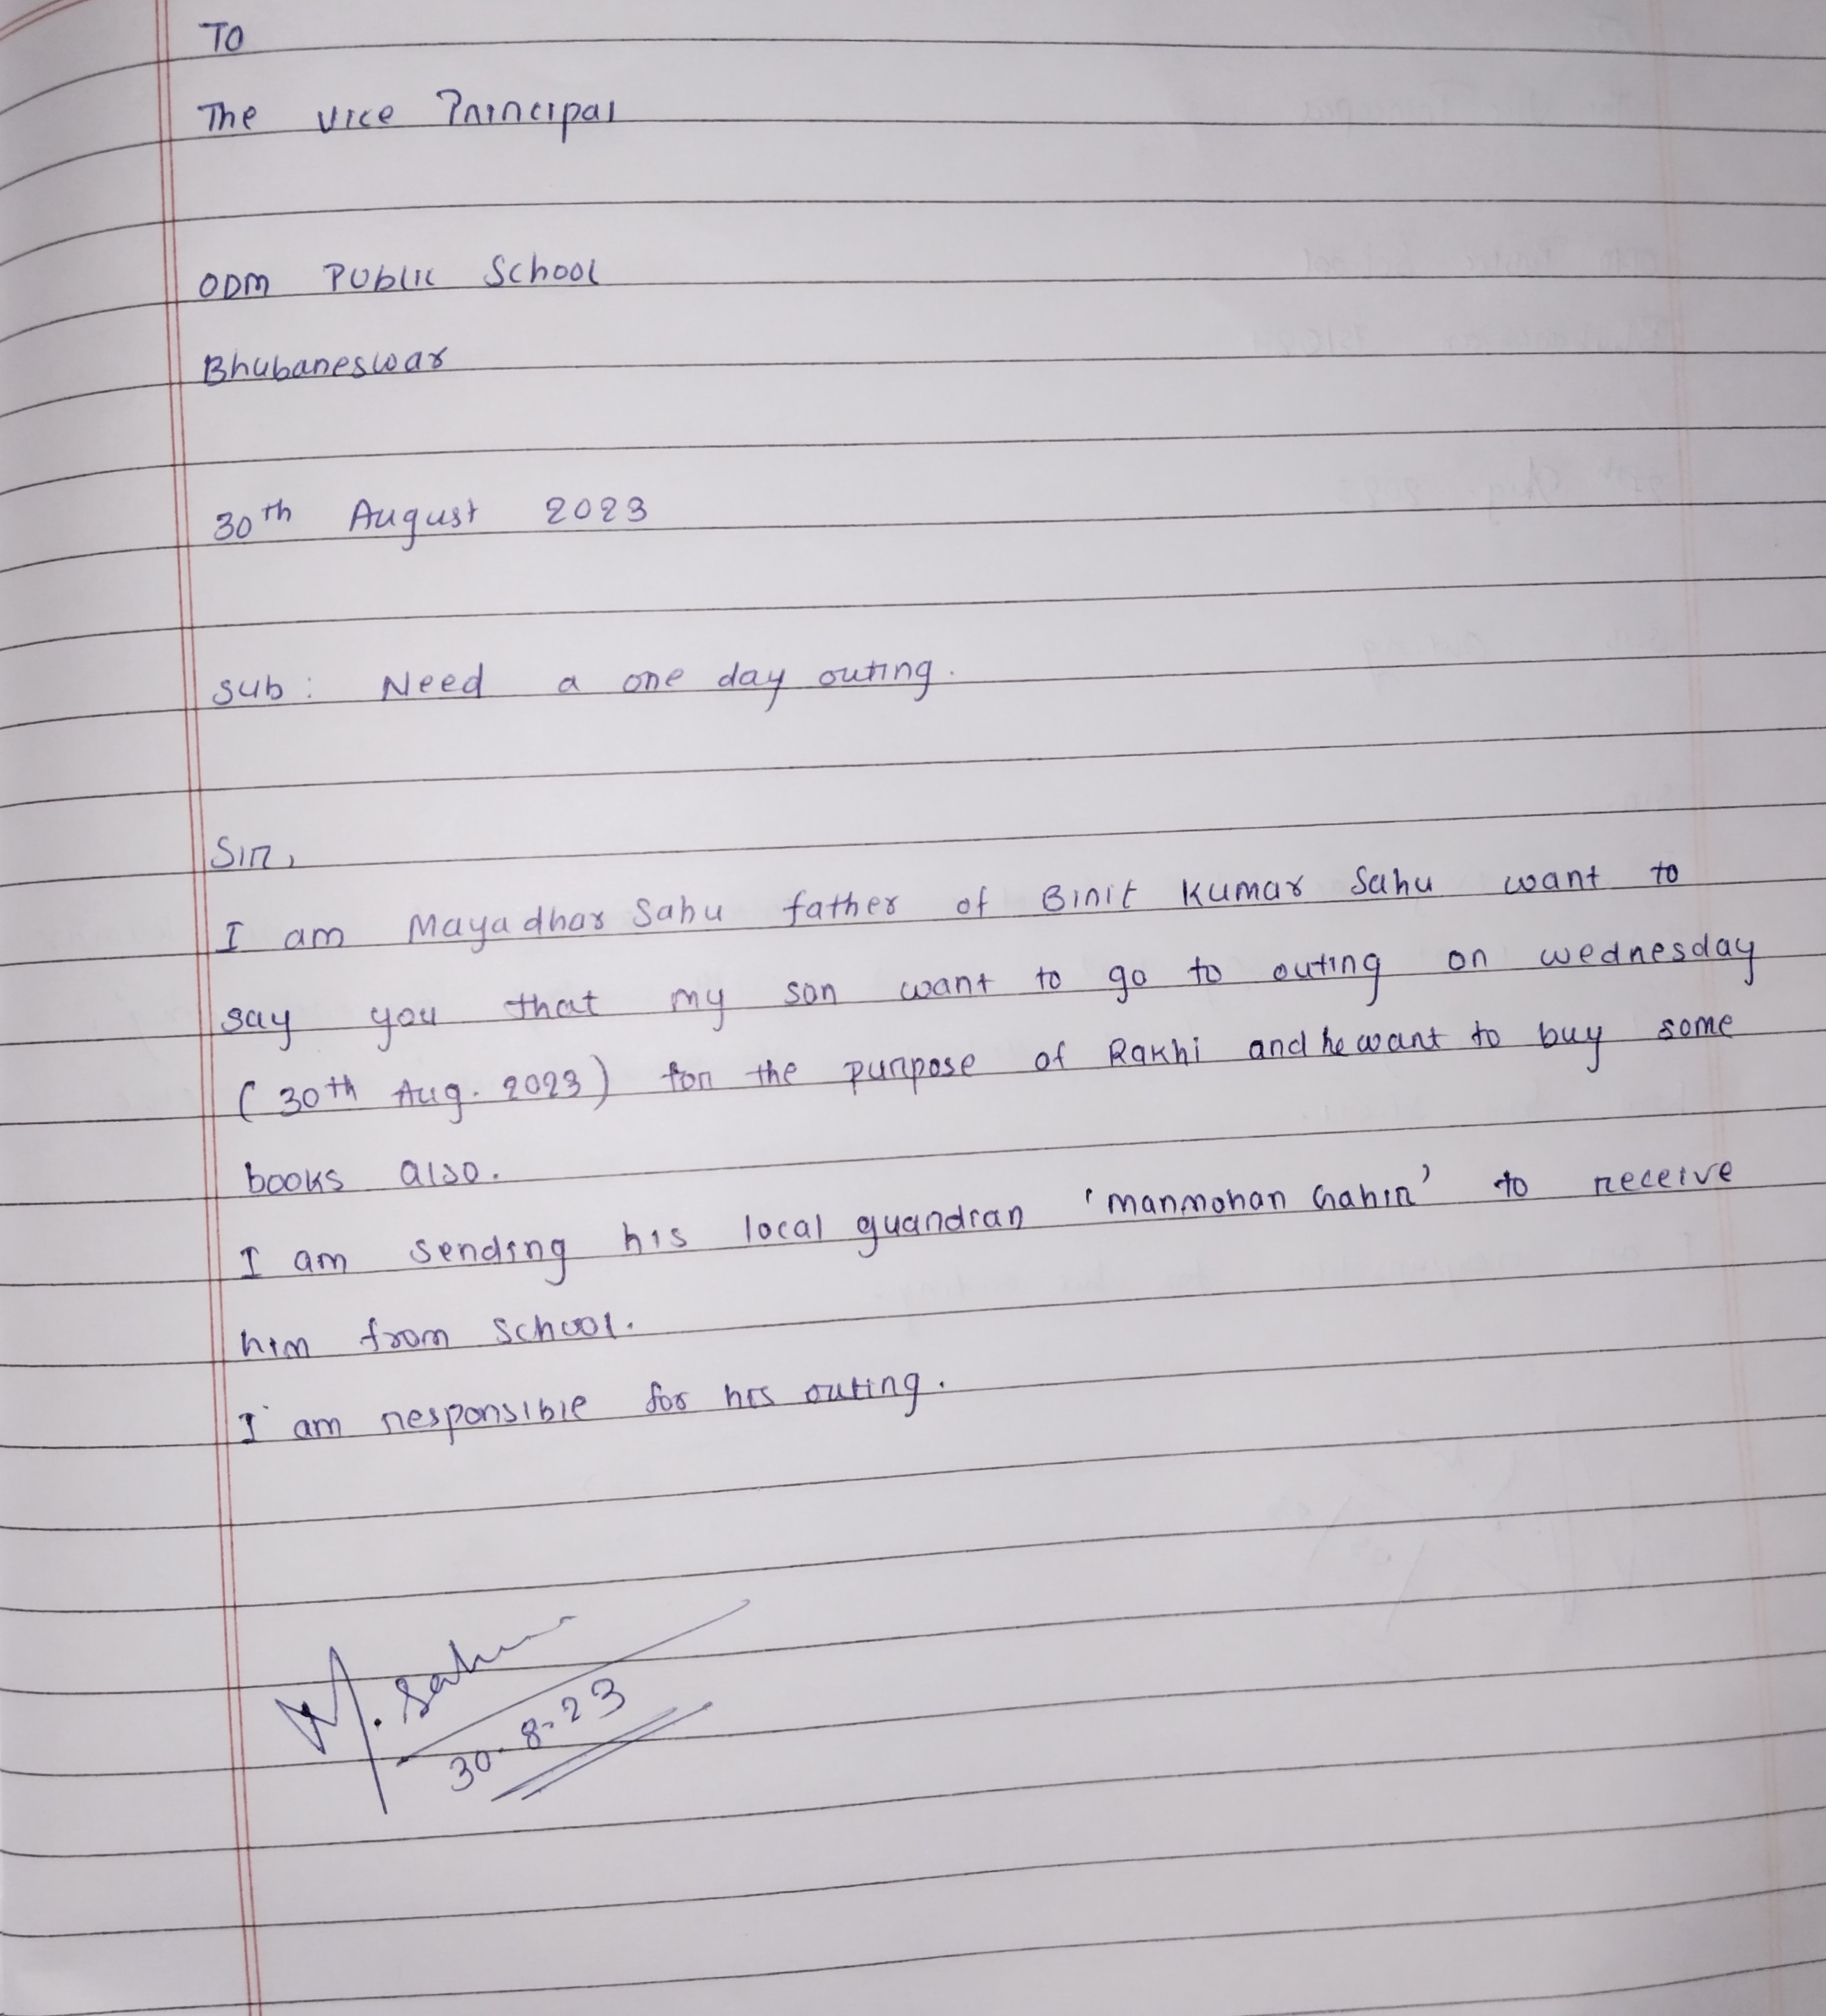 TO
The Vice Principal
ODM Public School
Bhubaneswar
30th August 2023
Sub: Need a one day outing.
Sir,
I am Mayadhar Sahu father of Binit Kumar Sahu want to
say you that my son want to go to outing on wednesday
(30th Aug. 2023) for the purpose of Rakhi and he want to buy some
books also.
I am sending his local guandran 'manmohan Gahir' to receive
him from school.
I am responsible for his outing.
M. Sahu
30-8-23